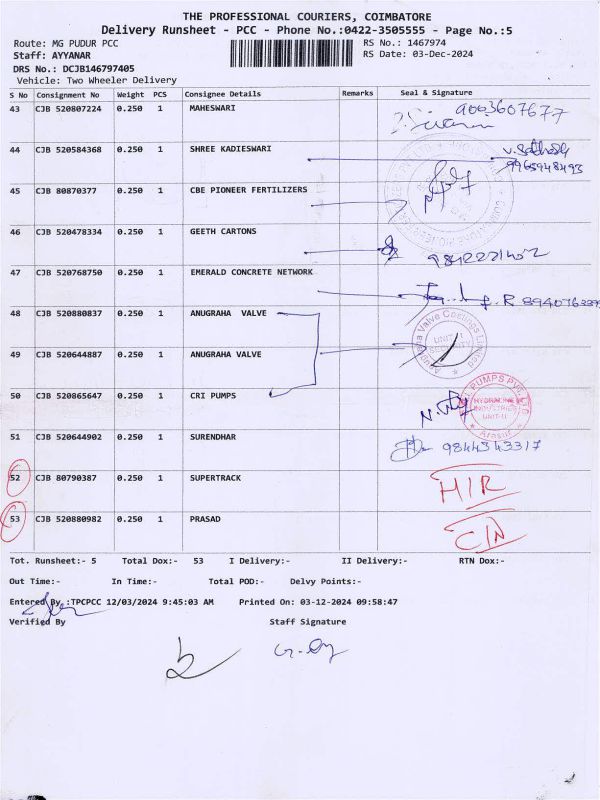 THE PROFESSIONAL COURIERS, COIMBATORE
Delivery Runsheet - PCC - Phone No.:0422-3505555 - Page No.:5
Route: MG PUDUR PCC RS No.: 1467974
Staff: AYYANAR RS Date: 03-Dec-2024
DRS No.: DCJB146797405
Vehicle: Two Wheeler Delivery
S No Consignment No Weight PCS Consignee Details Remarks Seal & Signature
43 CJB 520807224 0.250 1 MAHESWARI 9003607677
44 CJB 520584368 0.250 1 SHREE KADIESWARI
9965948493
45 CJB 80870377 0.250 1 CBE PIONEER FERTILIZERS
46 CJB 520478334 0.250 1 GEETH CARTONS
47 CJB 520768750 0.250 1 EMERALD CONCRETE NETWORK
48 CJB 520880837 0.250 1 ANUGRAHA VALVE
Anugraha Valve Castings Limited
UNIT-I
SECURITY
49 CJB 520644887 0.250 1 ANUGRAHA VALVE
50 CJB 520865647 0.250 1 CRI PUMPS
PUMPS PVT LTD
INDUSTRIES
UNIT-II
Arasur
51 CJB 520644902 0.250 1 SURENDHAR 9844343317
52 CJB 80790387 0.250 1 SUPERTRACK H/R
53 CJB 520880982 0.250 1 PRASAD C/N
Tot. Runsheet:- 5 Total Dox:- 53 I Delivery:- II Delivery:- RTN Dox:-
Out Time:- In Time:- Total POD:- Delvy Points:-
Entered By :TPCPCC 12/03/2024 9:45:03 AM Printed On: 03-12-2024 09:58:47
Verified By Staff Signature